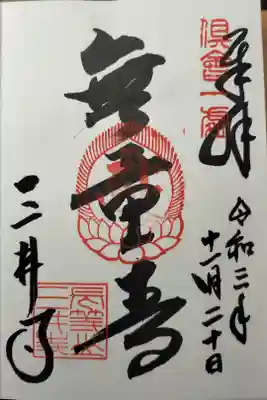 奉拝
倶會一處
令和三年
十一月二十日
無量寿
三井寺